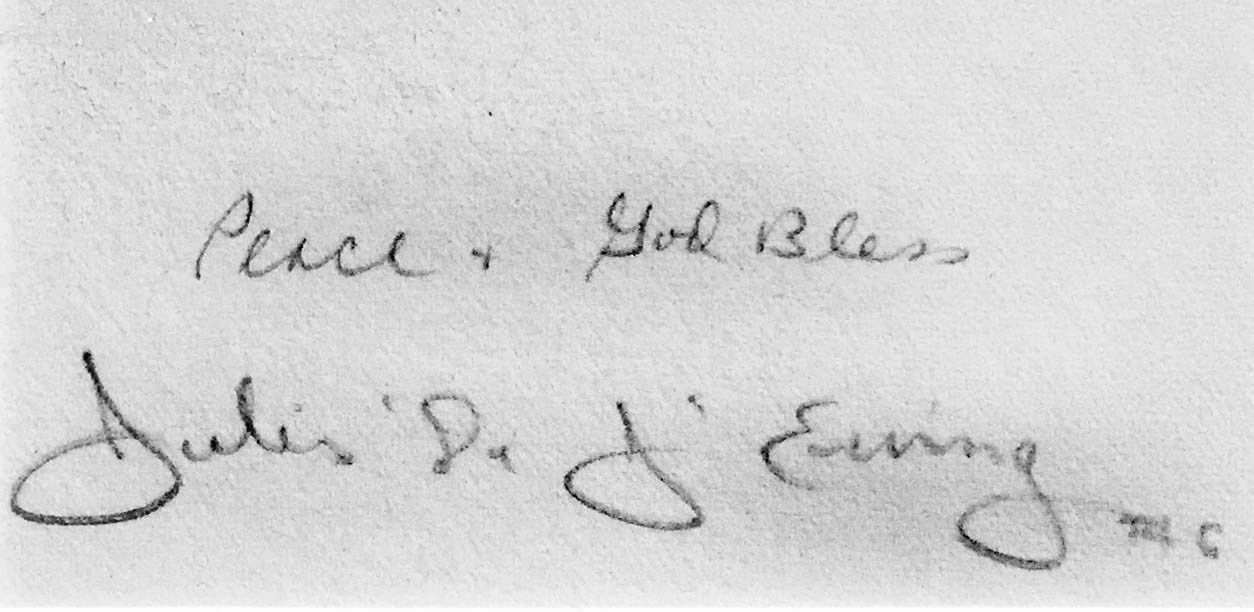 Peace + God Bless
Julius "Dr J" Erving